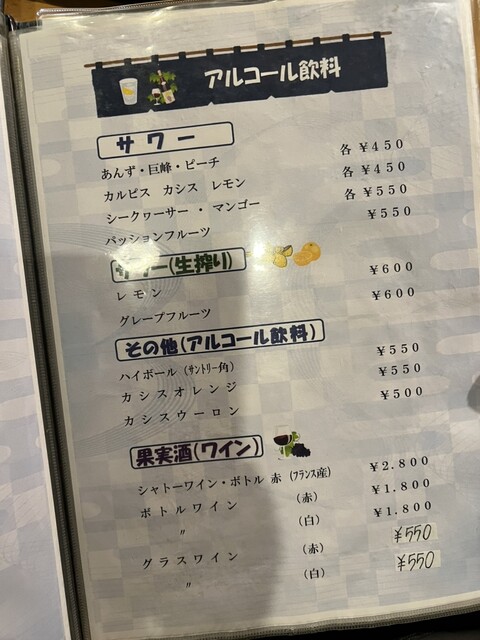 アルコール飲料
サワー
あんず・巨峰・ピーチ 各 ¥450
カルピス カシス レモン 各 ¥450
シークヮーサー ・ マンゴー 各 ¥550
パッションフルーツ ¥550
サワー(生搾り)
レモン ¥600
グレープフルーツ ¥600
その他(アルコール飲料)
ハイボール (サントリー角) ¥550
カシスオレンジ ¥550
カシスウーロン ¥500
果実酒(ワイン)
シャトーワイン・ボトル 赤 (フランス産) ¥2.800
ボトルワイン (赤) ¥1.800
〃 (白) ¥1.800
グラスワイン (赤) ¥550
〃 (白) ¥550